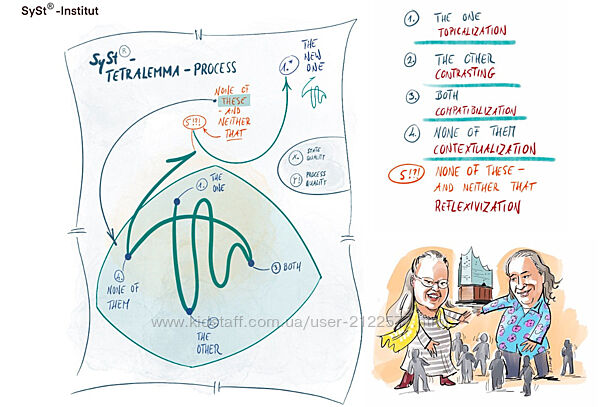 SySt® -Institut
SySt®-
TETRALEMMA - PROCESS
NONE OF
THESE -
- AND
NEITHER
THAT
5!?!
1.*
THE
NEW
ONE
X. STATE
QUALITY
Y! PROCESS
QUALITY
1. THE
ONE
3. BOTH
4.
NONE OF
THEM
THE
OTHER
1. THE ONE
TOPICALIZATION
2. THE OTHER
CONTRASTING
3. BOTH
COMPATIBILIZATION
4. NONE OF THEM
CONTEXTUALIZATION
5!?! NONE OF THESE -
AND NEITHER THAT
REFLEXIVIZATION